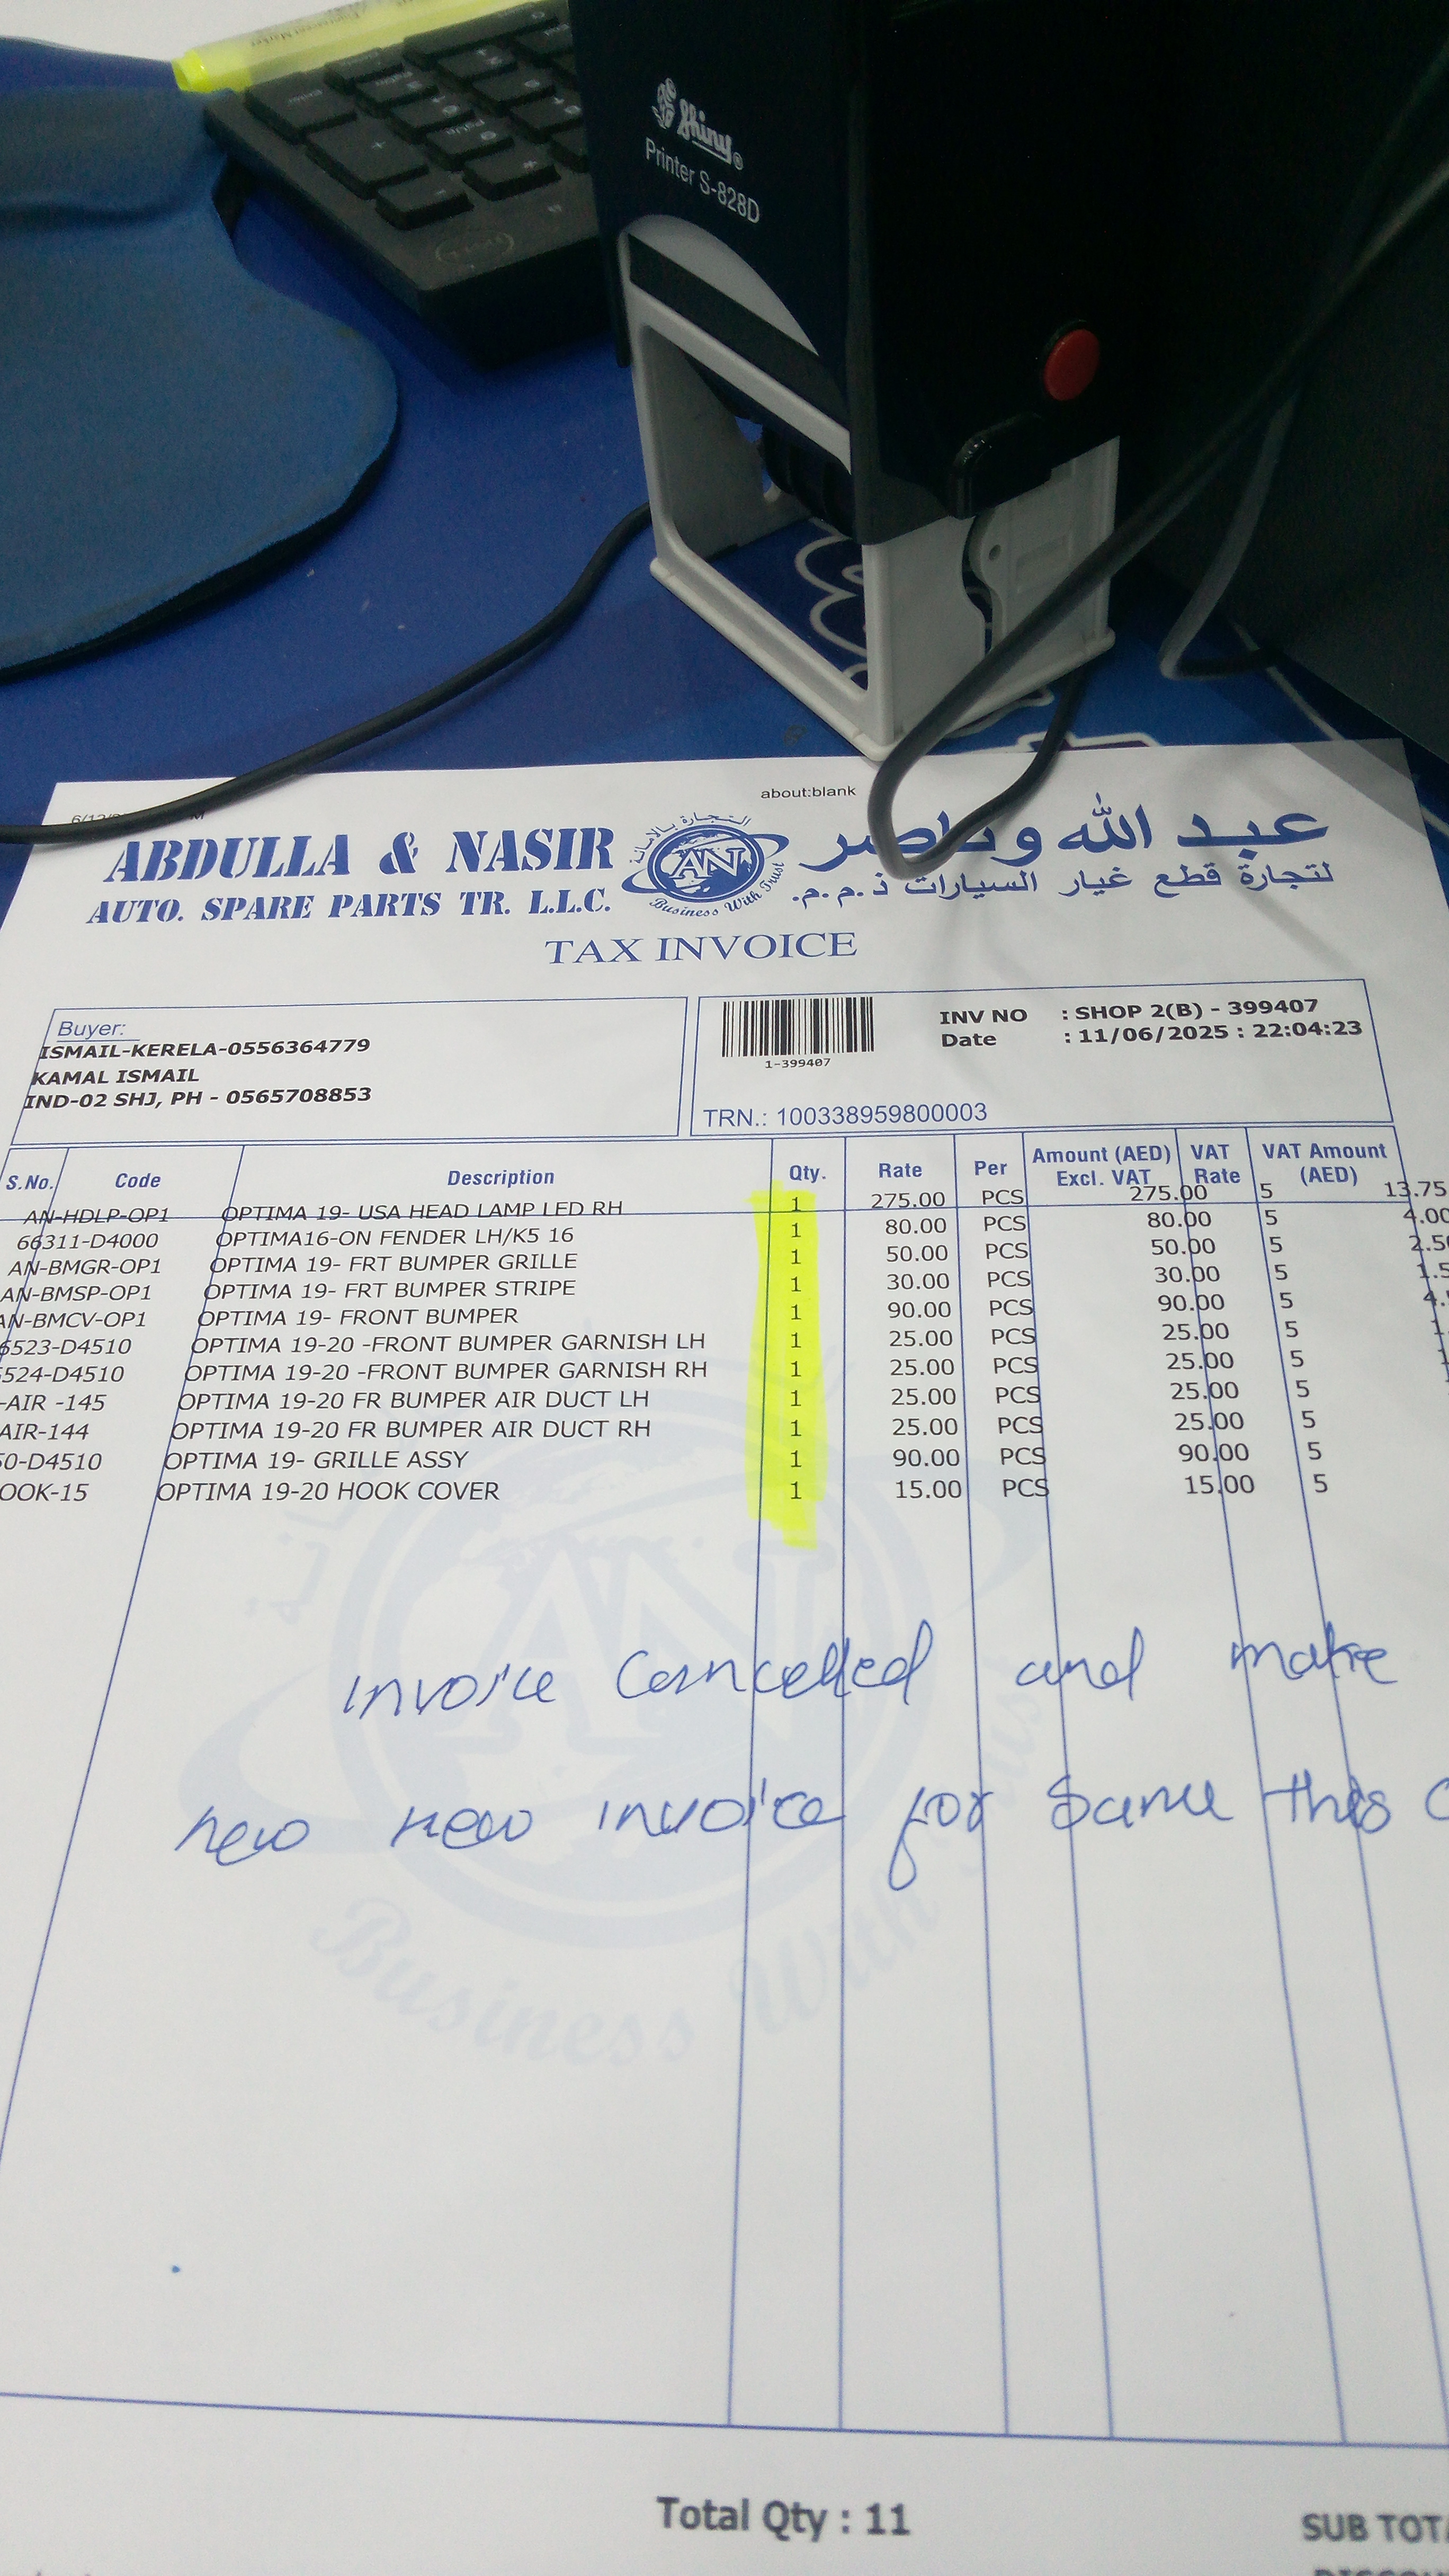 Shiny
Printer S-828D
about:blank
ABDULLA & NASIR
AUTO. SPARE PARTS TR. L.L.C.
التجارة بالامانة
AN
Business With Trust
عبد الله وناصر
لتجارة قطع غيار السيارات ذ.م.م.
TAX INVOICE
Buyer:
ISMAIL-KERELA-0556364779
KAMAL ISMAIL
IND-02 SHJ, PH - 0565708853
1-399407
INV NO : SHOP 2(B) - 399407
Date : 11/06/2025 : 22:04:23
TRN.: 100338959800003
S.No. Code Description Qty. Rate Per Amount (AED) Excl. VAT VAT Rate VAT Amount (AED)
AN-HDLP-OP1 OPTIMA 19- USA HEAD LAMP LED RH 1 275.00 PCS 275.00 5 13.75
66311-D4000 OPTIMA16-ON FENDER LH/K5 16 1 80.00 PCS 80.00 5 4.00
AN-BMGR-OP1 OPTIMA 19- FRT BUMPER GRILLE 1 50.00 PCS 50.00 5 2.50
AN-BMSP-OP1 OPTIMA 19- FRT BUMPER STRIPE 1 30.00 PCS 30.00 5 1.5
AN-BMCV-OP1 OPTIMA 19- FRONT BUMPER 1 90.00 PCS 90.00 5 4.
6523-D4510 OPTIMA 19-20 -FRONT BUMPER GARNISH LH 1 25.00 PCS 25.00 5 1.
524-D4510 OPTIMA 19-20 -FRONT BUMPER GARNISH RH 1 25.00 PCS 25.00 5
-AIR -145 OPTIMA 19-20 FR BUMPER AIR DUCT LH 1 25.00 PCS 25.00 5
AIR-144 OPTIMA 19-20 FR BUMPER AIR DUCT RH 1 25.00 PCS 25.00 5
0-D4510 OPTIMA 19- GRILLE ASSY 1 90.00 PCS 90.00 5
OOK-15 OPTIMA 19-20 HOOK COVER 1 15.00 PCS 15.00 5
AN
Business With
invoice Cancelled and make
new new invoice for Same this
Total Qty : 11
SUB TOTA